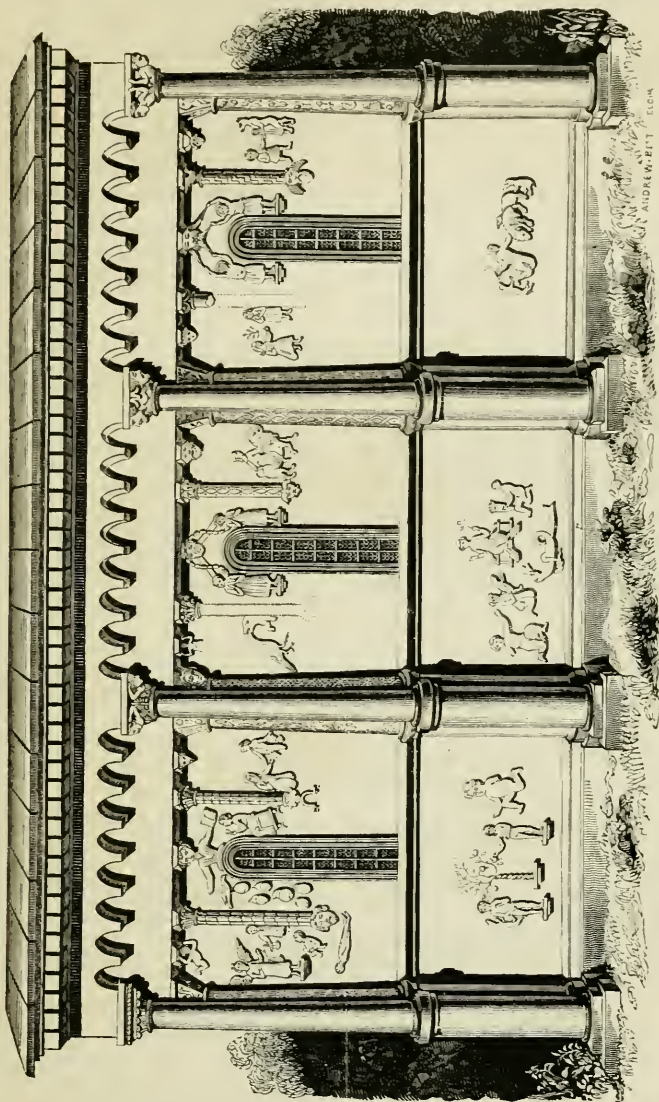 ANDREW-BEST ELGIN